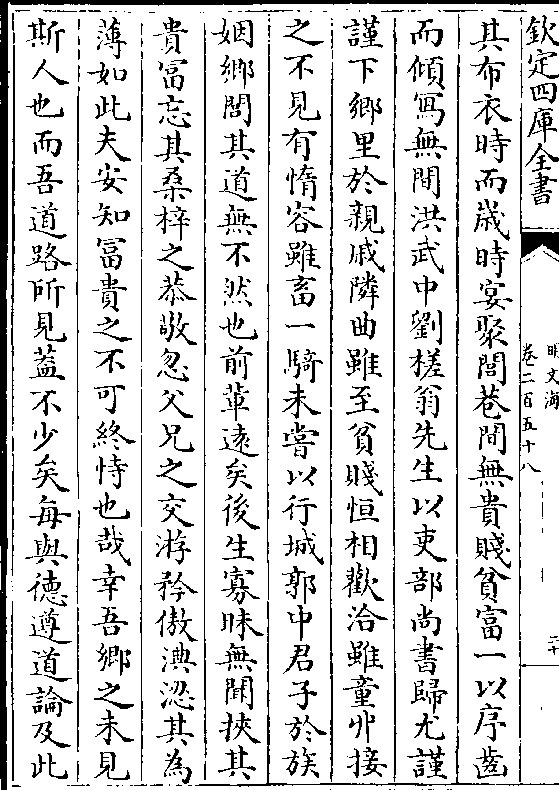 欽定四庫全書
明文海
卷二百五十八
二十
其布衣時而歲時宴聚閭巷間無貴賤貧富一以序齒
而傾寫無間洪武中劉槎翁先生以吏部尚書歸尤謹
謹下鄉里於親戚隣曲雖至貧賤恒相歡洽雖童丱接
之不見有惰容雖畜一騎未嘗以行城郭中君子於族
姻鄉閭其道無不然也前軰逺矣後生寡昧無聞挾其
貴富忘其桑梓之恭敬忽父兄之交游矜傲淟涊其為
薄如此夫安知冨貴之不可終恃也哉幸吾鄉之未見
斯人也而吾道路所見葢不少矣每與德遵道論及此